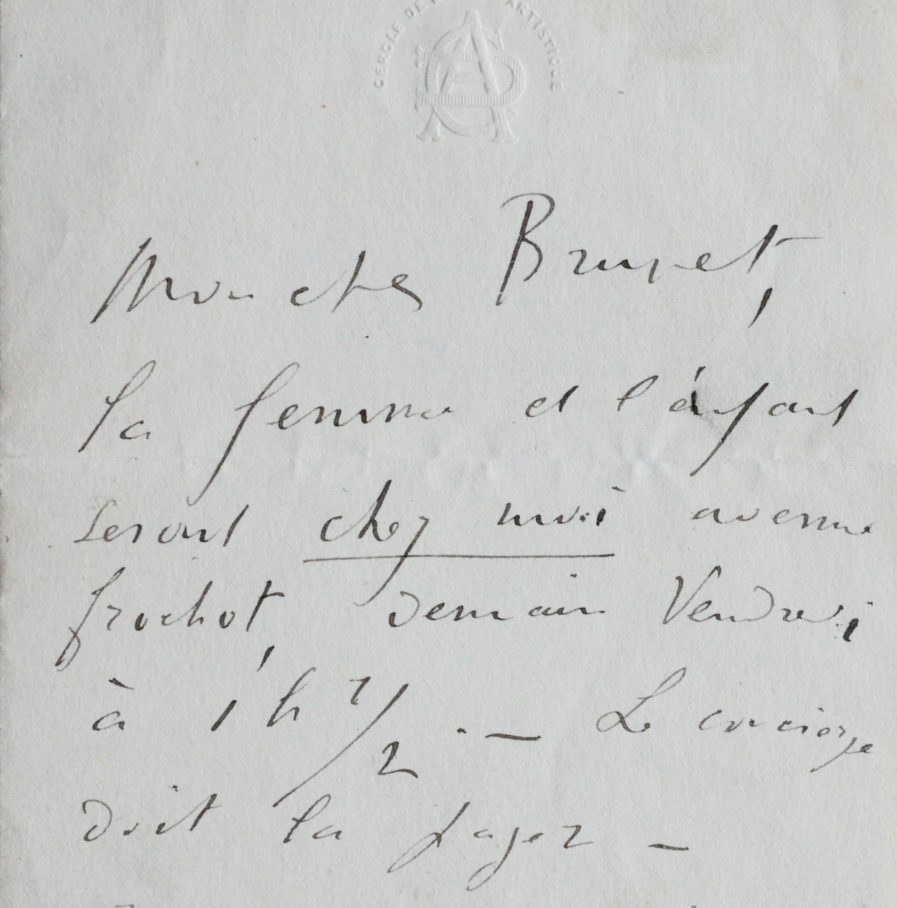 CERCLE DE ARTISTIQUE
Mon cher Brunet,
la femme et l'enfant
seront chez moi avenue
frochot, demain Vendredi
à 1 h 1/2. — Le concierge
doit la payer —